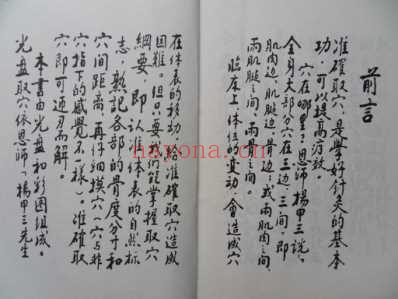 前言
准確取穴，是學好針灸的基本
功，可以提高療效。
穴在哪里？恩師楊甲三說，
全身大部分穴在三边、三间，即
肌肉边、肌腱边、骨边；或兩肌肉之间、
兩肌腱之间、兩骨之间。
臨床上，体位的变动，會造成穴
在体表的移动，給准確取穴造成
困難。但只要我們能掌握取穴
綱要，即認准体表的自然標
志，熟記各部的骨度分寸和
穴间距离，再仔细摸穴（穴与非
穴指下的感覺不一樣），准確取
穴即可通刃而解。
本書由光盘和彩图組成。
光盘取穴依恩師楊甲三先生
hazona.cn